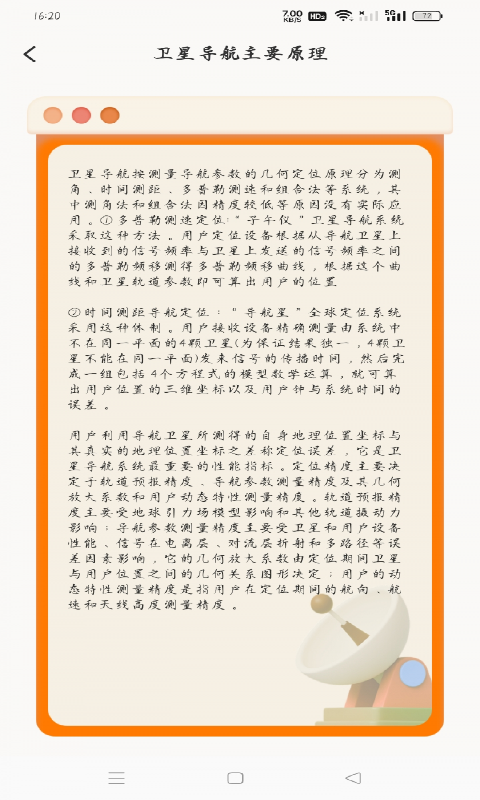 16:20
7.00 KB/S HD₂ 5G 72
卫星导航主要原理
卫星导航按测量导航参数的几何定位原理分为测
角、时间测距、多普勒测速和组合法等系统，其
中测角法和组合法因精度较低等原因没有实际应
用。①多普勒测速定位："子午仪"卫星导航系统
采取这种方法。用户定位设备根据从导航卫星上
接收到的信号频率与卫星上发送的信号频率之间
的多普勒频移测得多普勒频移曲线，根据这个曲
线和卫星轨道参数即可算出用户的位置
②时间测距导航定位："导航星"全球定位系统
采用这种体制。用户接收设备精确测量由系统中
不在同一平面的4颗卫星(为保证结果独一，4颗卫
星不能在同一平面)发来信号的传播时间，然后完
成一组包括4个方程式的模型数学运算，就可算
出用户位置的三维坐标以及用户钟与系统时间的
误差。
用户利用导航卫星所测得的自身地理位置坐标与
其真实的地理位置坐标之差称定位误差，它是卫
星导航系统最重要的性能指标。定位精度主要决
定于轨道预报精度、导航参数测量精度及其几何
放大系数和用户动态特性测量精度。轨道预报精
度主要受地球引力场模型影响和其他轨道摄动力
影响；导航参数测量精度主要受卫星和用户设备
性能、信号在电离层、对流层折射和多路径等误
差因素影响，它的几何放大系数由定位期间卫星
与用户位置之间的几何关系图形决定；用户的动
态特性测量精度是指用户在定位期间的航向、航
速和天线高度测量精度。